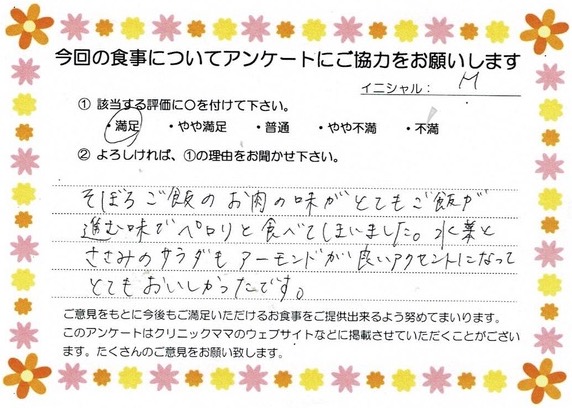 今回の食事についてアンケートにご協力をお願いします
イニシャル： M
① 該当する評価に〇を付けて下さい。
・満足 ・やや満足 ・普通 ・やや不満 ・不満
② よろしければ、①の理由をお聞かせ下さい。
そぼろご飯のお肉の味がとてもご飯が
進む味でペロリと食べてしまいました。水菜と
ささみのサラダもアーモンドが良いアクセントになって
とてもおいしかったです。
ご意見をもとに今後もご満足いただけるお食事をご提供出来るよう努めてまいります。
このアンケートはクリニックママのウェブサイトなどに掲載させていただくことがござい
ます。たくさんのご意見をお願い致します。